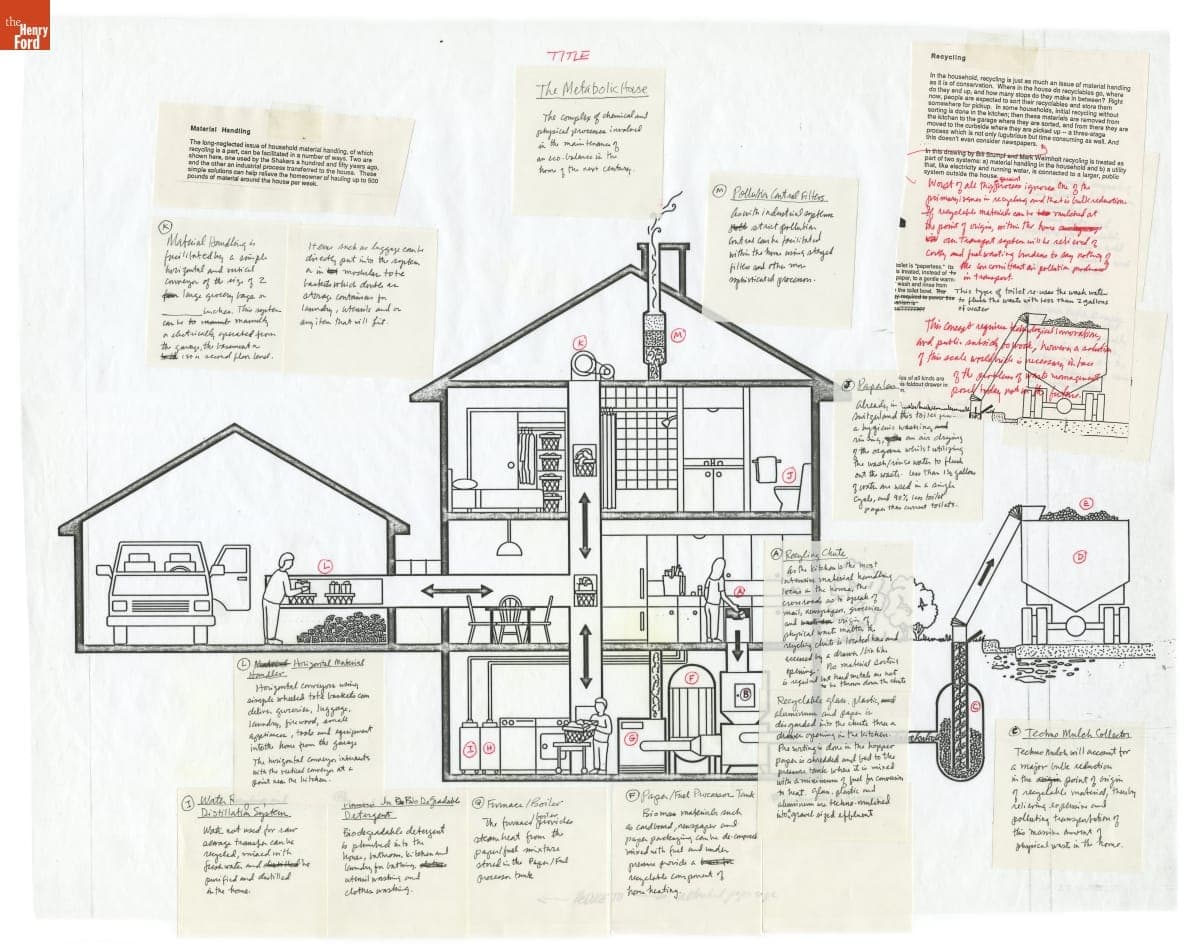 the
Henry
Ford
TITLE
The Metabolic House
The complex of chemical and
physical processes involved
in the maintenance of
an eco-balance in the
home of the next century.
Material Handling
The long-neglected issue of household material handling, of which
recycling is a part, can be facilitated in a number of ways. Two are
shown here, one used by the Shakers a hundred and fifty years ago,
and the other an industrial process transferred to the house. These
simple solutions can help relieve the homeowner of hauling up to 500
pounds of material around the house per week.
Recycling
In the household, recycling is just as much an issue of material handling
as it is of conservation. Where in the house do recyclables go, where
do they end up, and how many stops do they make in between? Right
now, people are expected to sort their recyclables and store them
somewhere for pickup. In some households, initial recycling without
sorting is done in the kitchen; then these materials are removed from
the kitchen to the garage where they are sorted, and from there they are
moved to the curbside where they are picked up – a three-stage
process which is not only lugubrious but time consuming as well. And
this doesn't even consider newspapers.
In this drawing by Bill Stumpf and Mark Weinholt recycling is treated as
part of two systems: a) material handling in the household and b) a utility
that, like electricity and running water, is connected to a larger, public
system outside the house.
Worst of all this process ignores one of the
primary issues in recycling and that is bulk reduction.
If recyclable materials can be mulched at
the point of origin, within the home
our transport system will be relieved of
costly and fuel wasting burdens to say nothing of
the concomitant air pollution produced
in transport.
This type of toilet re-uses the wash water
to flush the waste with less than 2 gallons
of water
This concept requires technological innovation,
and public subsidy to work, however a solution
of this scale is necessary in face
of the problems of waste management
posed today not in the future.
K
Material Handling is
facilitated by a simple
horizontal and vertical
conveyor of the size of 2
large grocery bags or
inches. This system
can be manually
or electrically operated from
the garage, the basement or
a second floor level.
Items such as luggage can be
directly put into the system
or in modular tote
baskets which double as
storage containers for
laundry, utensils and or
any item that will fit.
M Pollution Control Filters
As with industrial systems
strict pollution
control can be facilitated
within the home using staged
filters and other more
sophisticated processes.
J Paperless
Already in
Switzerland this toilet
a hygienic washing and
rinsing, an air drying
of the organs whilst utilizing
the wash/rinse water to flush
out the waste. Less than 1½ gallons
of water are used in a single
cycle, and 90% less toilet
paper than current toilets.
K
M
J
L
A
B
C
D
E
F
G
H
I
A Recycling Chute
As the kitchen is the most
intensive material handling
locus in the home, the
crossroads so to speak of
mail, newspapers, groceries
and origin of
physical waste matter the
recycling chute is located here and
accessed by a drawer/bin like
opening. No material sorting
is required but hard metals are not
to be thrown down the chute
Recyclable glass, plastic,
aluminum and paper is
discarded into the chute thru a
drawer opening in the kitchen.
Pre sorting is done in the hopper
paper is shredded and fed to the
pressure tank where it is mixed
with a minimum of fuel for conversion
to heat. Glass, plastic and
aluminum are techno-mulched
into gravel sized effluent
L Horizontal Material
Handler
Horizontal conveyors using
simple wheeled tote baskets can
deliver groceries, luggage,
laundry, firewood, small
appliances, tools and equipment
into the home from the garage
The horizontal conveyor intersects
with the vertical conveyor at a
point near the kitchen.
C Techno Mulch Collector
Techno Mulch will account for
a major bulk reduction
in the point of origin
of recyclable material, thereby
relieving expensive and
polluting transportation of
this massive amount of
physical waste in the home.
I Water
Distillation System
Water not used for raw
sewage transfer can be
recycled, mixed with
fresh water and be
purified and distilled
in the home.
Bio Degradable
Detergent
Biodegradable detergent
is plumbed into the
house, bathroom, kitchen and
laundry for bathing,
utensil washing and
clothes washing.
G Furnace/Boiler
The furnace/boiler provides
steam heat from the
paper/fuel mixture
stored in the Paper/Fuel
processor tank
F Paper/Fuel Processor Tank
Biomass materials such
as cardboard, newspaper and
paper packaging can be decomposed
mixed with fuel and under
pressure provide a
recyclable component of
home heating.